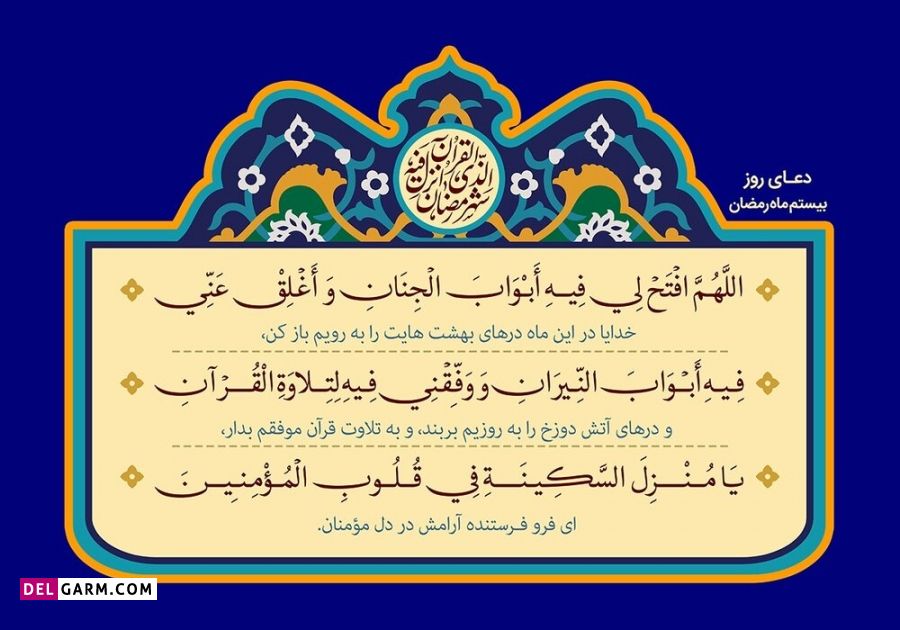 شهر رمضان الذی انزل فیه القرآن
دعـای روز
بیستم ماه رمضان
اللَّهُمَّ افْتَحْ لِي فِيهِ أَبْوَابَ الْجِنَانِ وَ أَغْلِقْ عَنِّي
خدایا در این ماه درهای بهشت هایت را به رویم باز کن،
فِيهِ أَبْوَابَ النِّيرَانِ وَ وَفِّقْنِي فِيهِ لِتِلاوَةِ الْقُرْآنِ
و درهای آتش دوزخ را به روزیم بربند، و به تلاوت قرآن موفقم بدار،
يَا مُنْزِلَ السَّكِينَةِ فِي قُلُوبِ الْمُؤْمِنِينَ
ای فرو فرستنده آرامش در دل مؤمنان.
DELGARM.COM